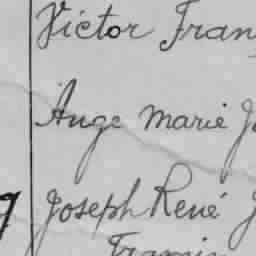 Victor Fran
Ange Marie J
Joseph René J